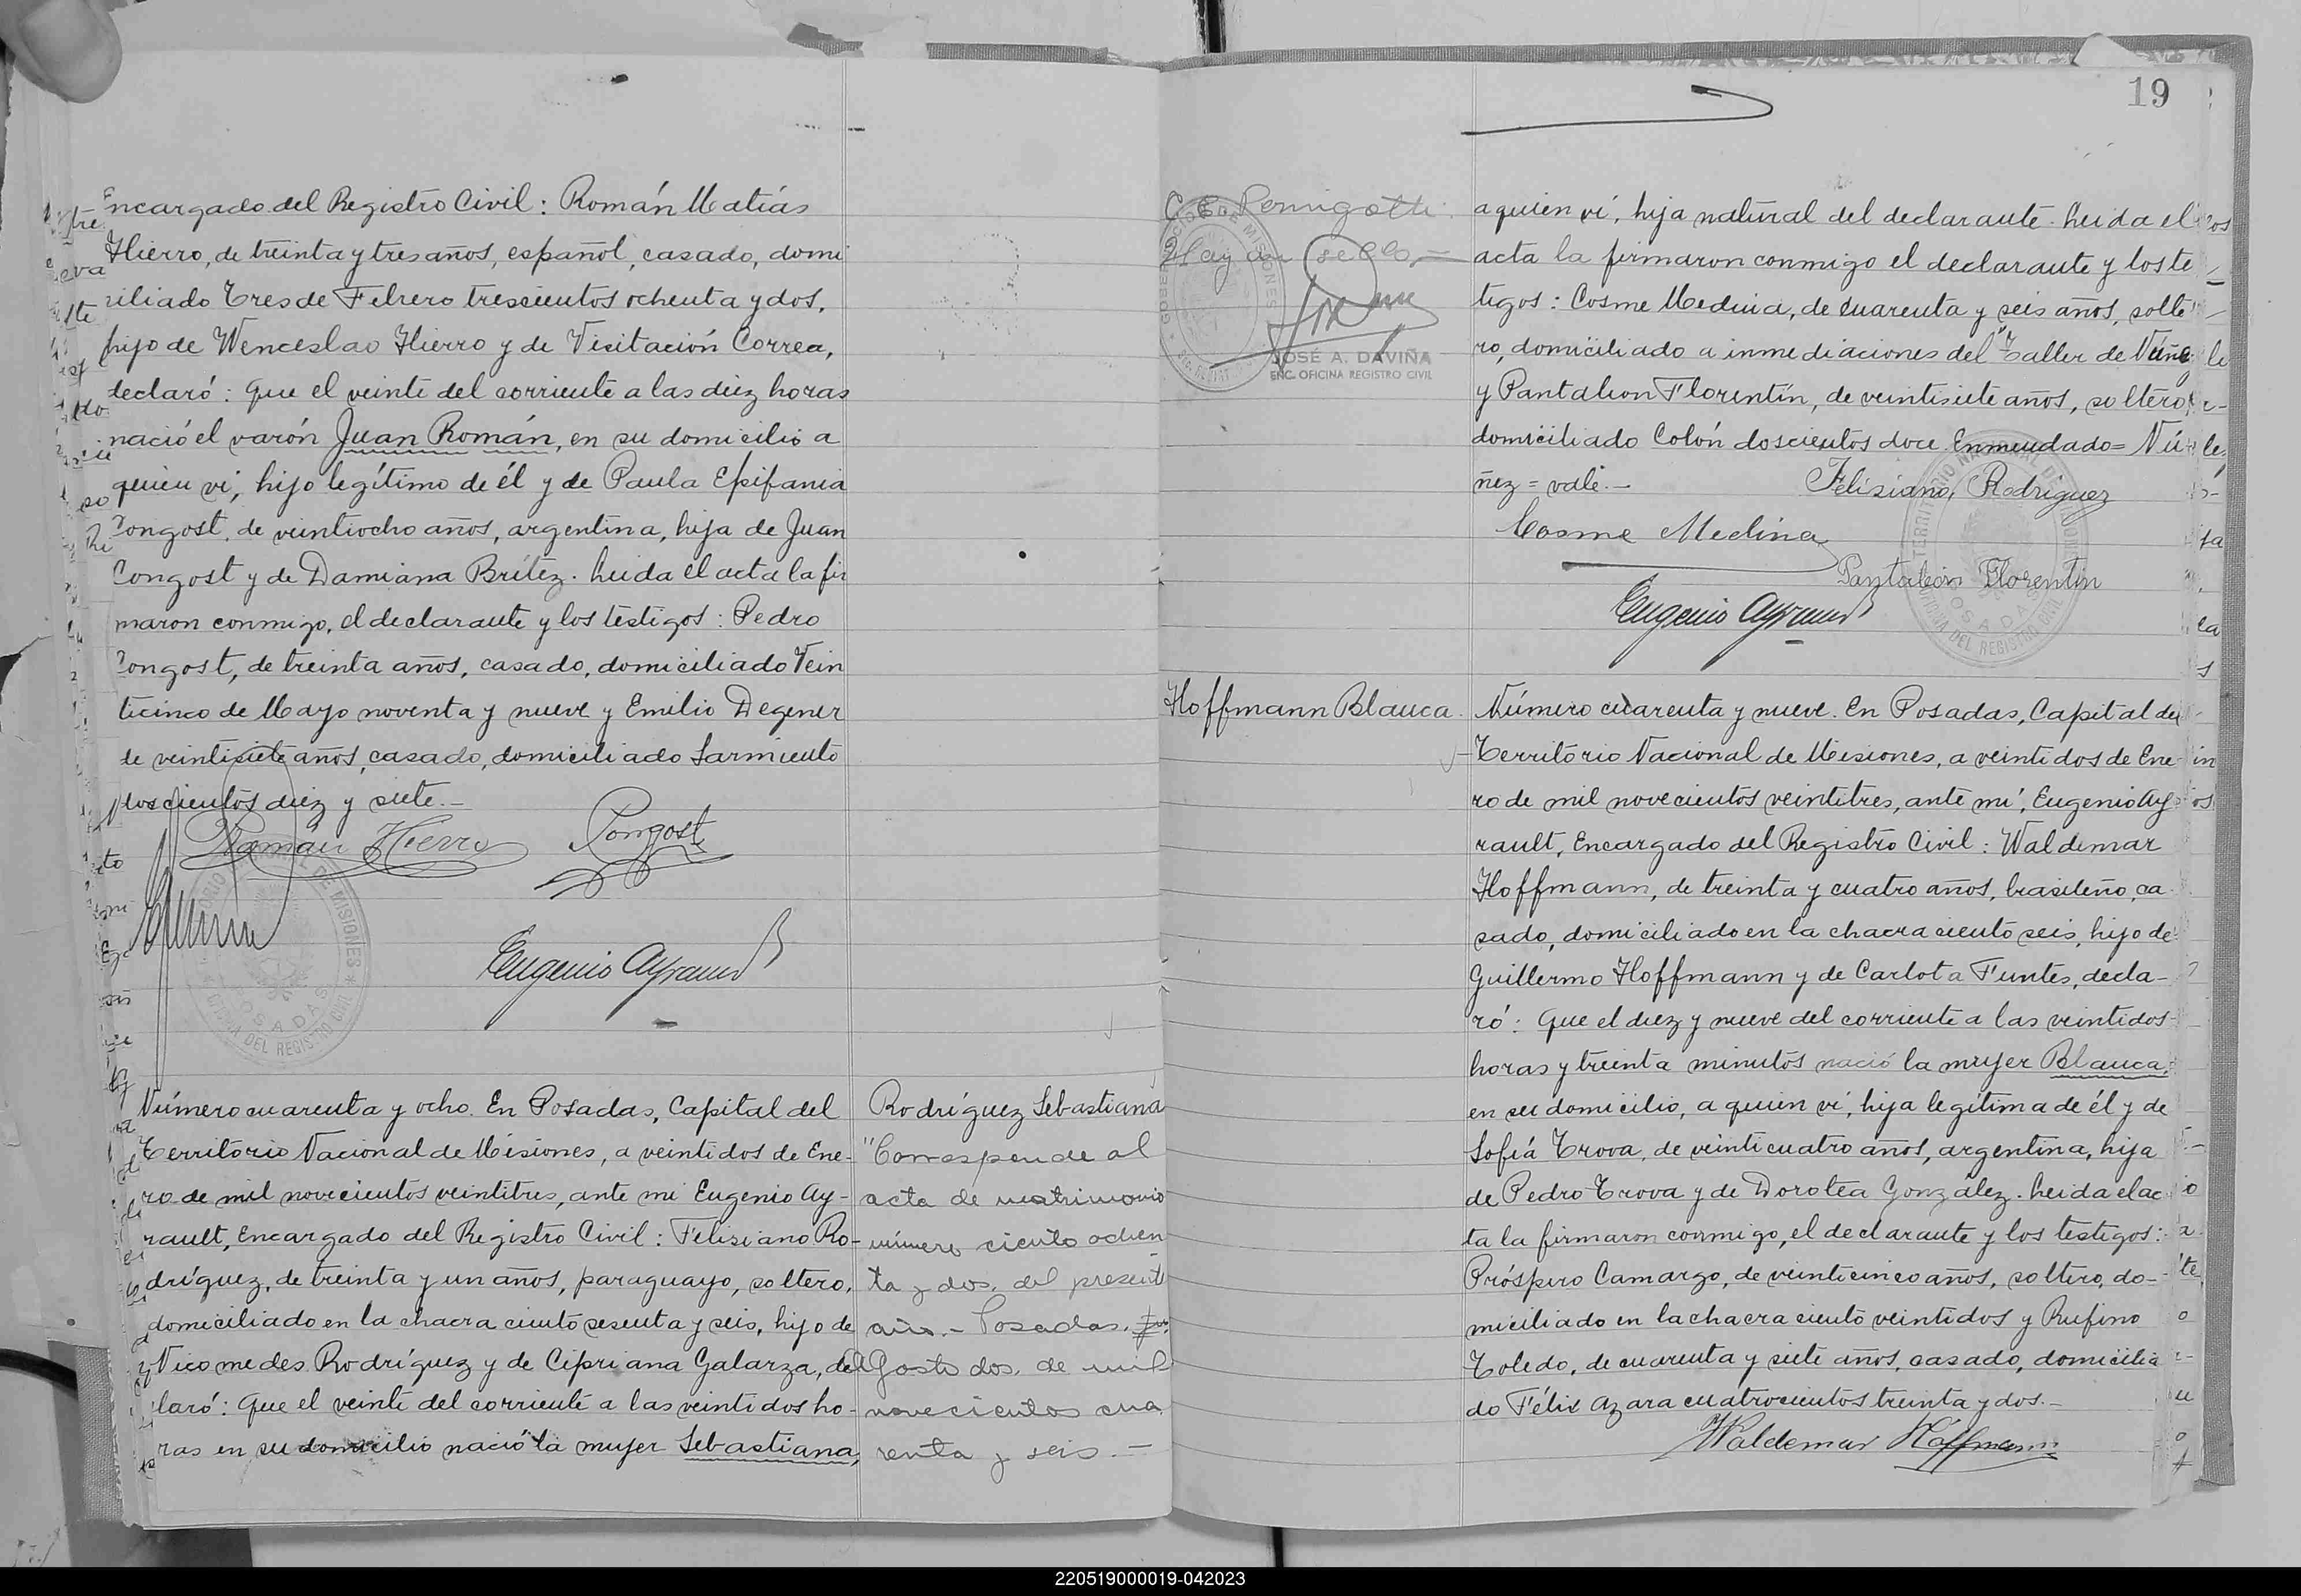 Encargado del Registro Civil: Román Matías
Hierro, de treinta y tres años, español, casado, domi
ciliado Tres de Febrero trescientos ochenta y dos,
hijo de Wenceslao Hierro y de Visitación Correa,
declaró: Que el veinte del corriente a las diez horas
nació el varón Juan Román, en su domicilio a
quien vi, hijo legítimo de él y de Paula Epifania
Congost, de veintiocho años, argentina, hija de Juan
Congost y de Damiana Brítez. Leida el acta la fir
maron conmigo, el declarante y los testigos: Pedro
Congost, de treinta años, casado, domiciliado Vein
ticinco de Mayo noventa y nueve y Emilio Degener
de veintisiete años, casado, domiciliado Sarmiento
doscientos diez y siete.-
Román Hierro
Congost
Eugenio Ayrault
TERRITORIO NACIONAL DE MISIONES
POSADAS
OFICINA DEL REGISTRO CIVIL
Número cuarenta y ocho. En Posadas, Capital del
Territorio Nacional de Misiones, a veintidos de Ene-
ro de mil novecientos veintitres, ante mi Eugenio Ay-
rault, Encargado del Registro Civil: Felisiano Ro-
dríguez, de treinta y un años, paraguayo, soltero,
domiciliado en la chacra ciento sesenta y seis, hijo de
Nicomedes Rodríguez y de Cipriana Galarza, de
claró: Que el veinte del corriente a las veintidos ho-
ras en su domicilio nació la mujer Sebastiana,
Rodríguez Sebastiana
"Corresponde al
acta de matrimonio
número ciento ochen
ta y dos, del presente
año.- Posadas,
Agosto dos, de mil
novecientos cua
renta y seis.-
19
C. E. Pernigotti.
Hay un sello.=
JOSÉ A. DAVIÑA
ENC. OFICINA REGISTRO CIVIL
a quien vi, hija natural del declarante. Leida el
acta la firmaron conmigo el declarante y los te
tigos: Cosme Medina, de cuarenta y seis años, solte
ro, domiciliado a inmediaciones del Taller de Núñez
y Pantaleon Florentín, de veintisiete años, soltero,
domiciliado Colón doscientos doce. Enmendado= Nú
ñez = vale.-
Felisiano Rodriguez
Cosme Medina
Pantaleón Florentín
Eugenio Ayrault
TERRITORIO NACIONAL DE MISIONES
POSADAS
OFICINA DEL REGISTRO CIVIL
Hoffmann Blanca.
Número cuarenta y nueve. En Posadas, Capital del
Territorio Nacional de Misiones, a veintidos de Ene-
ro de mil novecientos veintitres, ante mi, Eugenio Ay
rault, Encargado del Registro Civil: Waldemar
Hoffmann, de treinta y cuatro años, brasileño, ca
sado, domiciliado en la chacra ciento seis, hijo de
Guillermo Hoffmann y de Carlota Funtes, decla-
ró: Que el diez y nueve del corriente a las veintidos
horas y treinta minutos nació la mujer Blanca,
en su domicilio, a quien vi, hija legítima de él y de
Sofía Trova, de veinticuatro años, argentina, hija
de Pedro Trova y de Dorotea González. Leida el ac
ta la firmaron conmigo, el declarante y los testigos:
Próspero Camargo, de veinticinco años, soltero, do-
miciliado en la chacra ciento veintidos y Rufino
Toledo, de cuarenta y siete años, casado, domicilia
do Félix Azara cuatrocientos treinta y dos.-
Waldemar Hoffmann
220519000019-042023